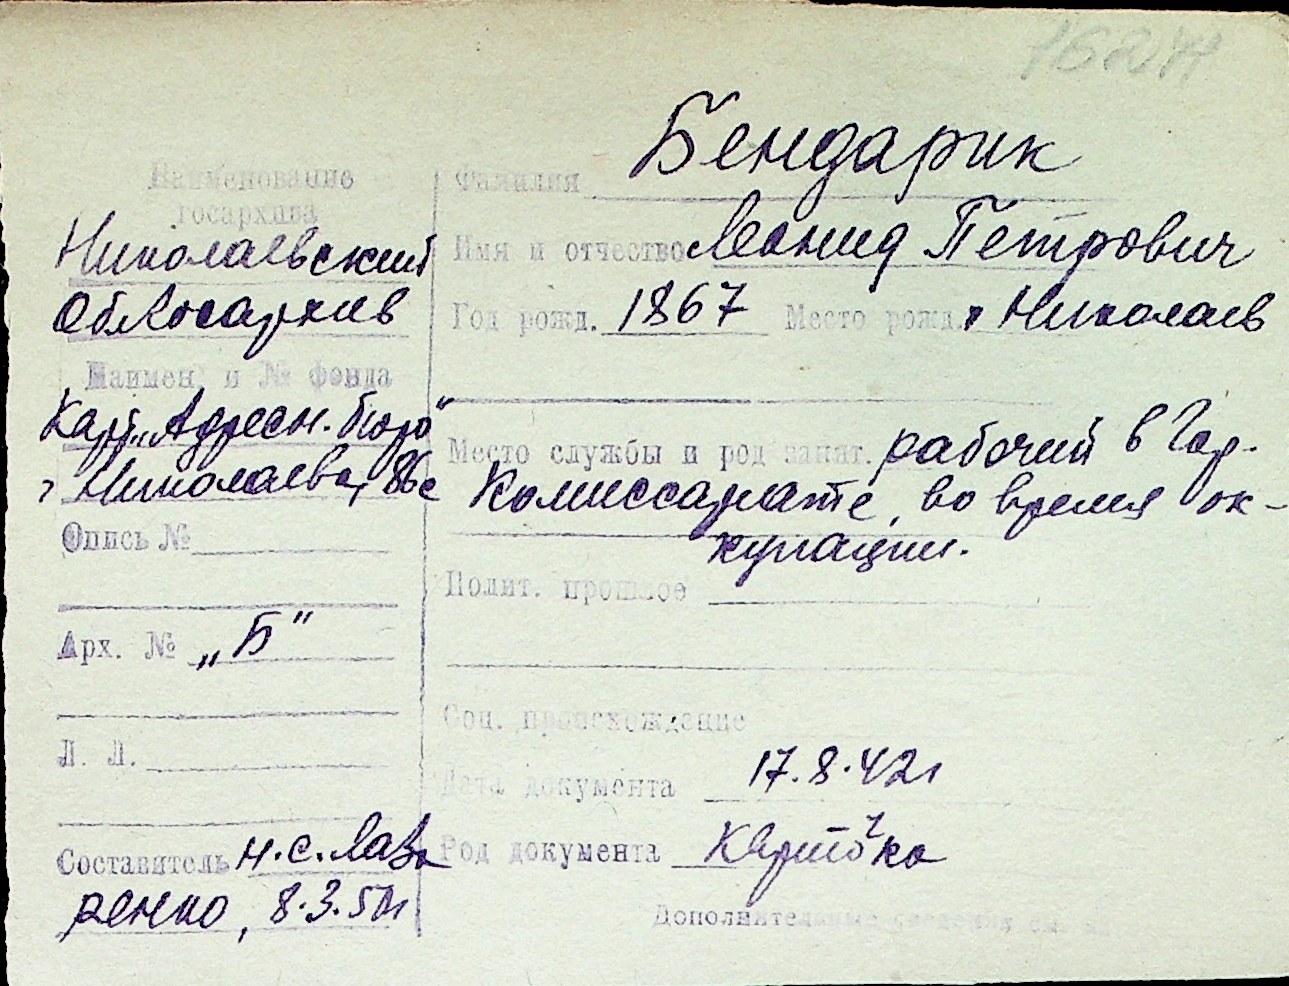 Бендарик
Наименование
госархива
Николаевский
Облгосархив
Наимен. и № фонда
Карт. „Адресн. бюро"
г Николаева, 86с
Опись №
Арх. № „Б"
Л. Л.
Составитель Н.С. Лавренко, 8.3.50г
Фамилия
Имя и отчество Леонид Петрович
Год рожд. 1867 Место рожд. г Николаев
Место службы и род занят. рабочий в Гор.
Комиссариате, во время ок-
купации.
Полит. прошлое
Соц. происхождение
Дата документа 17.8.42г
Род документа Карточка
Дополнительные сведения см. на